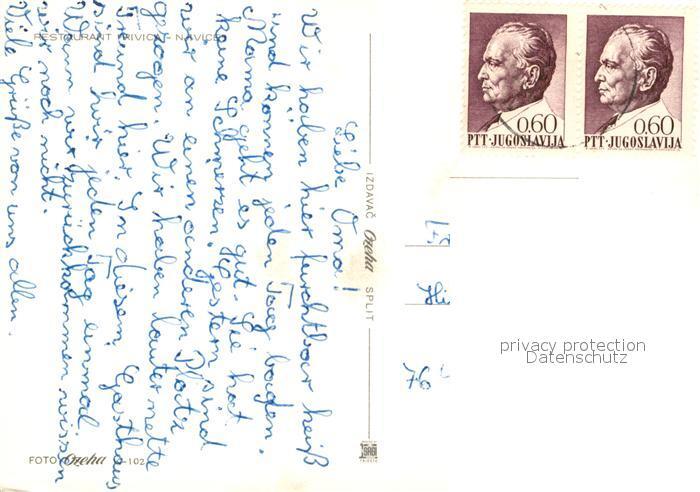 RESTAURANT TRIVICA - NAVICE
Liebe Oma!
Wir haben hier furchtbar heiß
und können jeden Tag baden.
Mama geht es gut. Sie hat
keine Schmerzen. Gestern sind
wir an einen anderen Platz
gezogen. Wir haben lauter nette
Freund hier. In diesem Gasthaus
sind wir jeden Tag einmal.
Wann wir zurückkommen wissen
wir noch nicht.
Viele Grüße von uns allen.
IZDAVAČ Ozeha SPLIT
FOTO Ozeha
102
0.60
PTT·JUGOSLAVIJA
0.60
PTT·JUGOSLAVIJA
privacy protection
Datenschutz